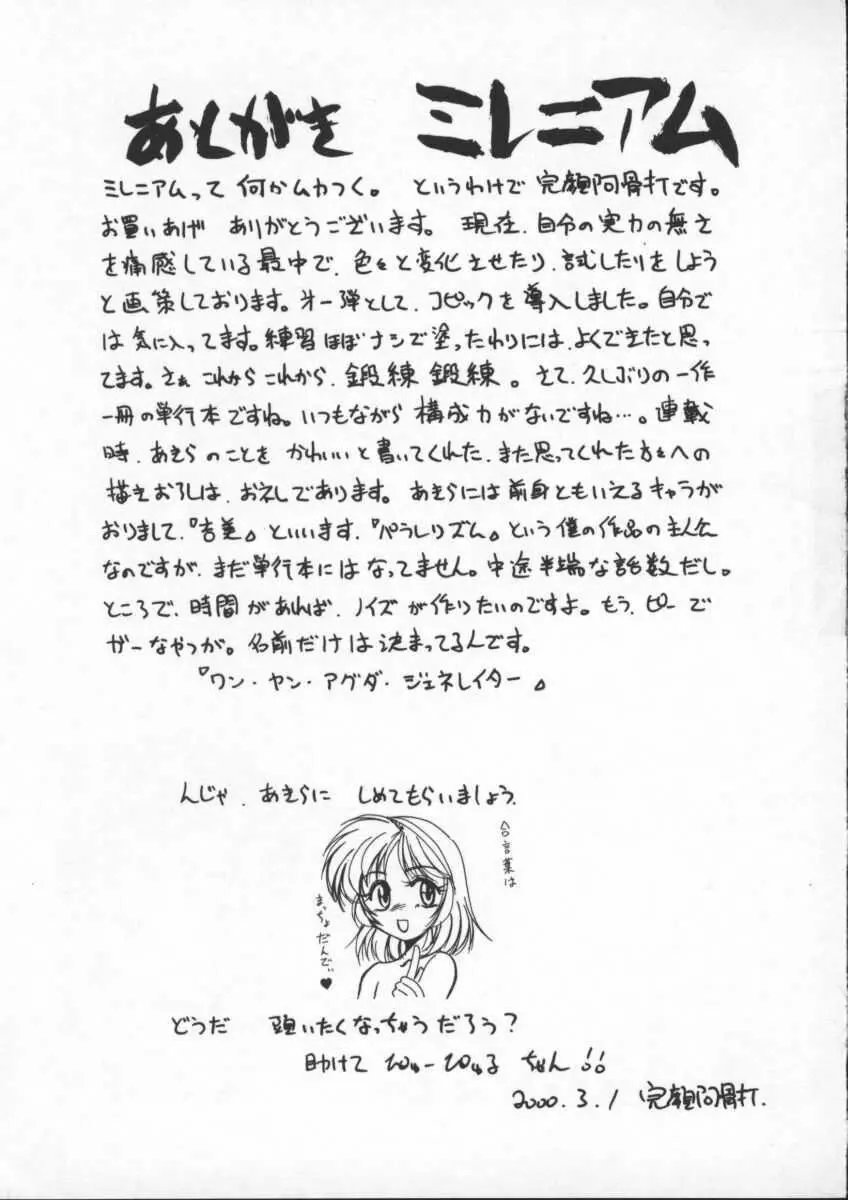 あとがき ミレニアム
ミレニアムって 何かムカつく。 というわけで 完顔阿骨打です。
お買いあげ ありがとうございます。 現在、自分の実力の無さ
を痛感している最中で、色々と変化させたり、試したりをしよう
と画策しております。オ一弾として、コピックを導入しました。自分で
は気に入ってます。練習ほぼナシで塗ったわりには、よくできたと思っ
てます。さぁ これから これから、鍛練 鍛練。さて、久しぶりの一作
一冊の単行本ですね。いつもながら 構成力がないですね…。連載
時、あきらのことを かわいいと書いてくれた、また思ってくれた方々への
描きおろしは、おえしであります。あきらには前身ともいえるキャラが
おりまして、『吉美』といいます、『パラレリズム』という僕の作品の主人公
なのですが、まだ単行本にはなってません。中途半端な話数だし。
ところで、時間があれば、ノイズが作りたいのですよ。もう、ピーで
ガーなやつが。名前だけは決まってるんです。
『ワン・ヤン・アグダ・ジェネレイター』
んじゃ、あきらに しめてもらいましょう、
合言葉は
まっちょだんでぃ♥
どうだ 強いたくなっちゃうだろう?
助けて ひゅーひゅる ちゃん!!
2000.3.1 完顔阿骨打.